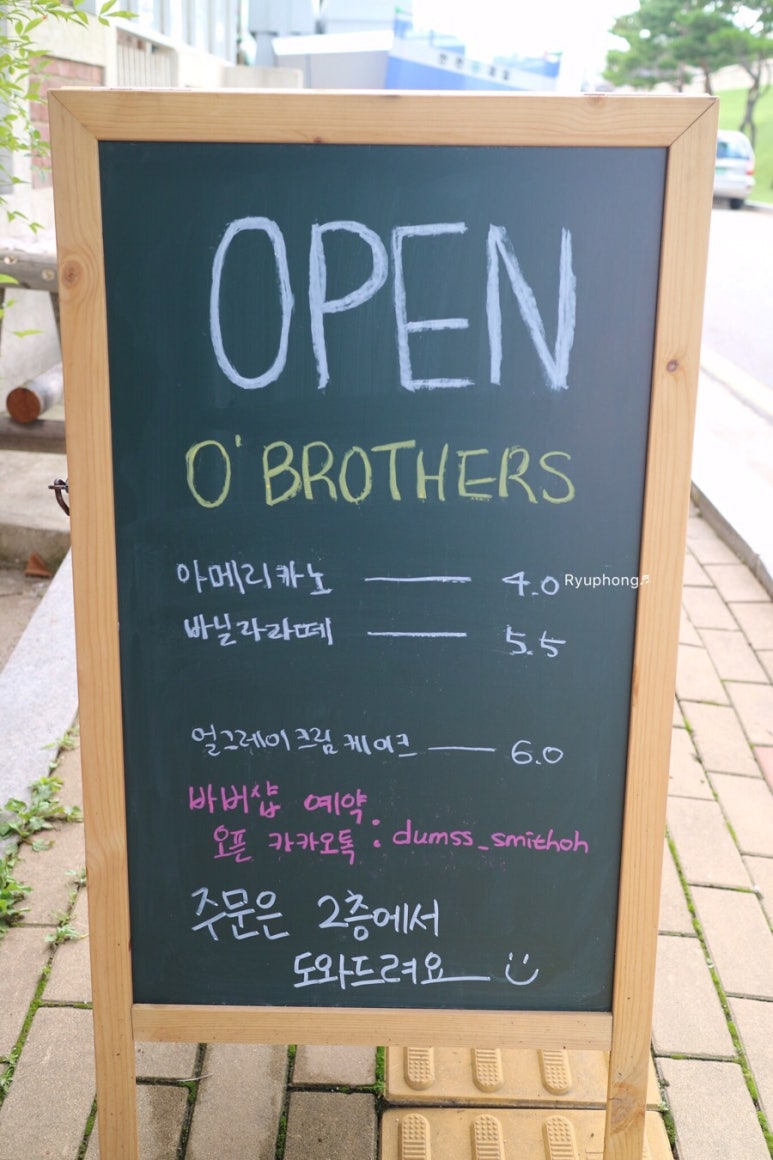 OPEN
O'BROTHERS
아메리카노 — 4.0
Ryuphong♬
바닐라라떼 — 5.5
얼그레이크림케이크 — 6.0
바버샵 예약
오픈 카카오톡 : dumss_smithoh
주문은 2층에서
도와드려요 :)